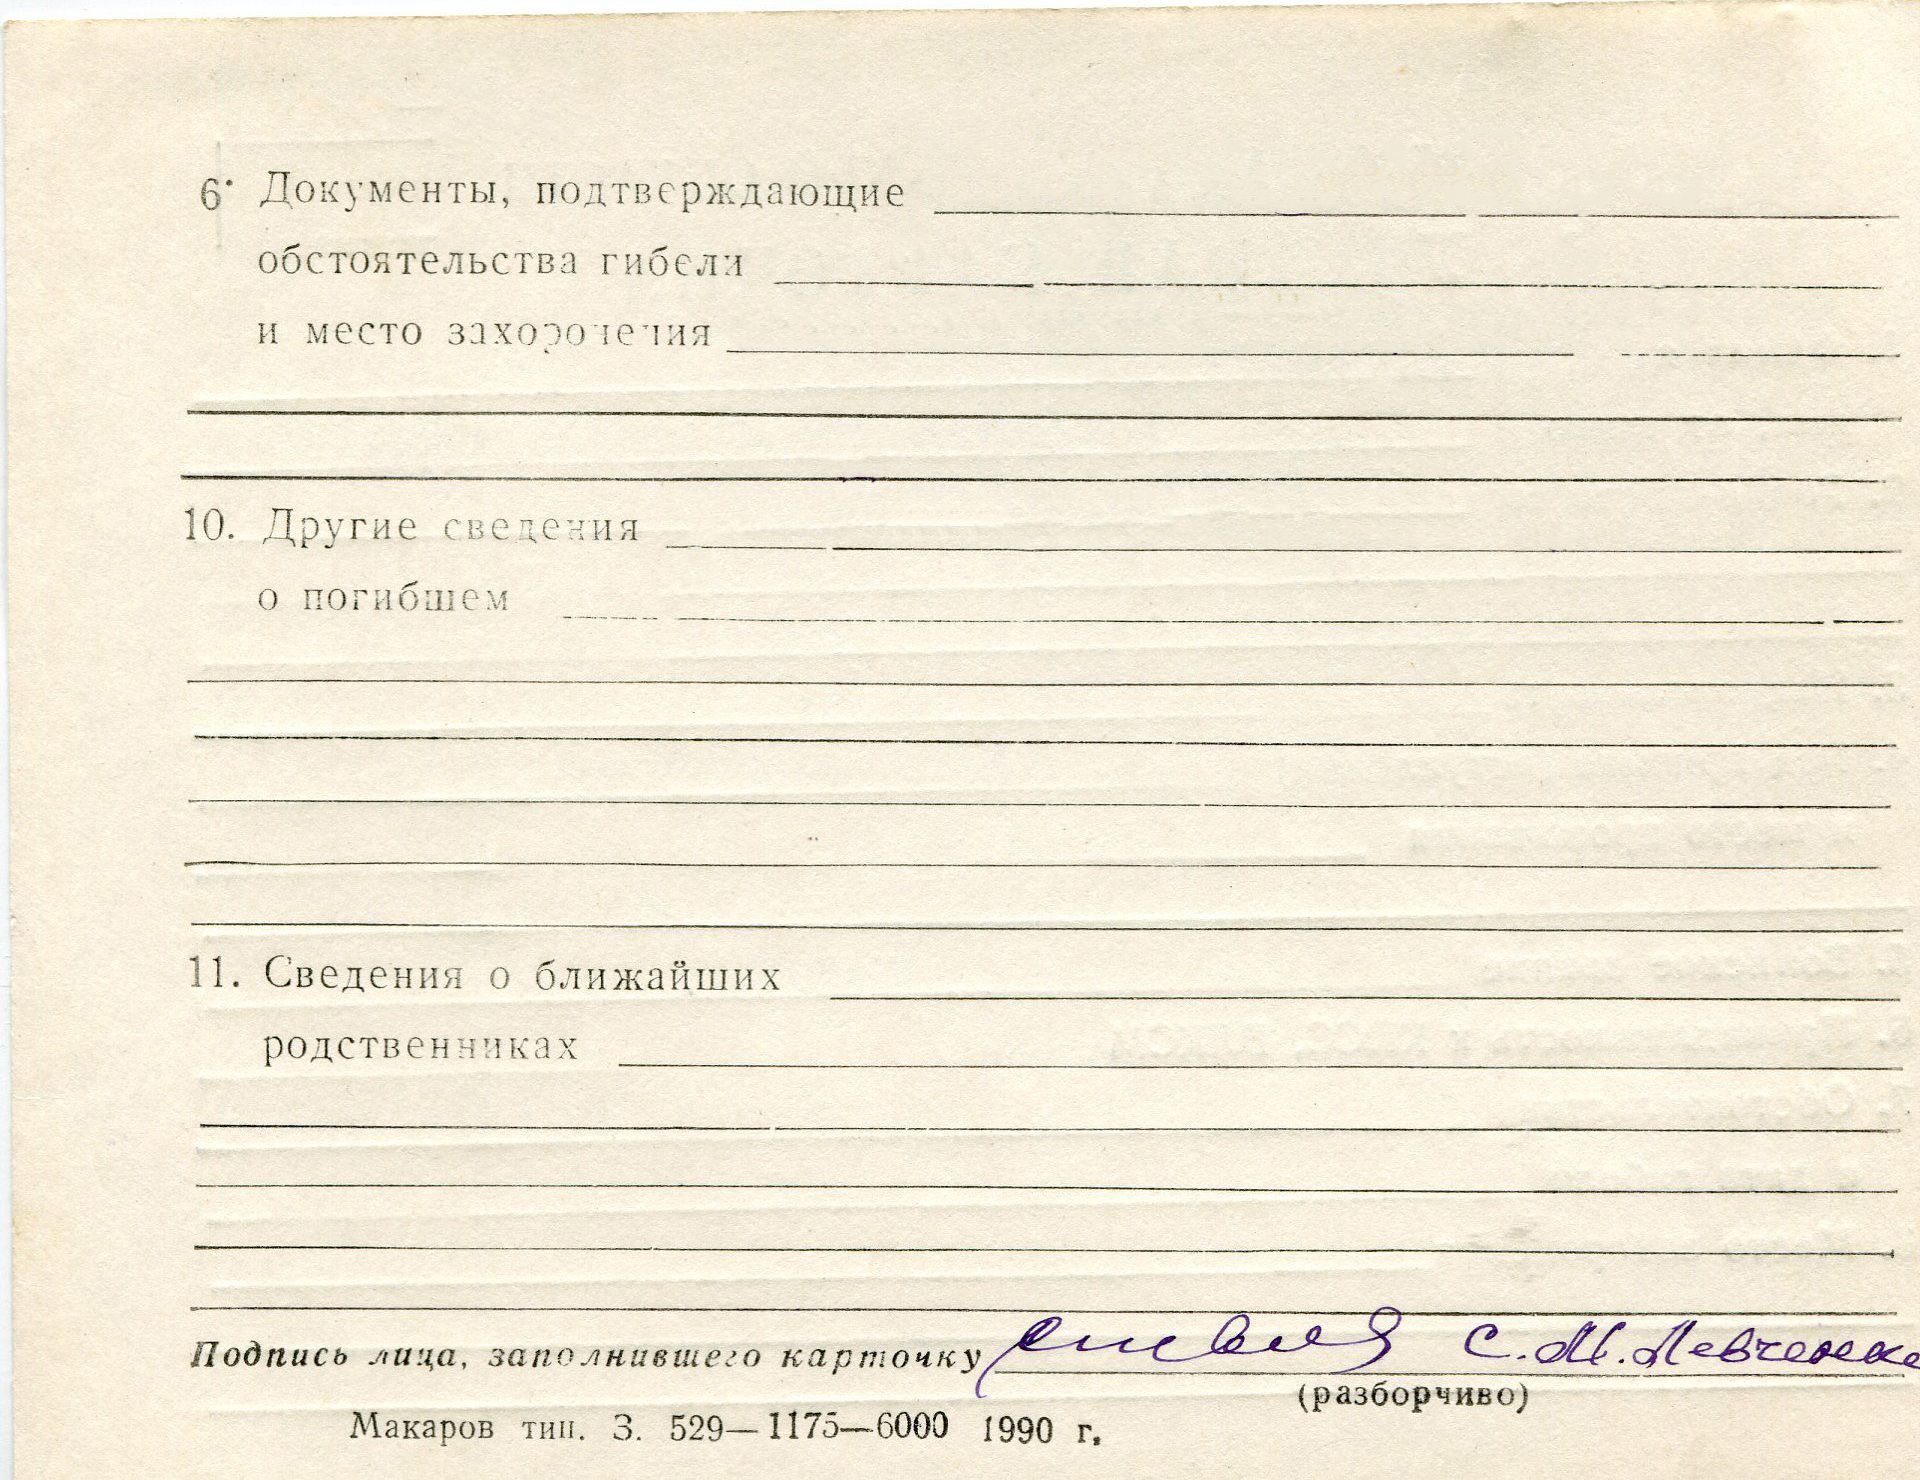 6. Документы, подтверждающие
обстоятельства гибели
и место захоронения
10. Другие сведения
о погибшем
11. Сведения о ближайших
родственниках
Подпись лица, заполнившего карточку С. М. Левченко
(разборчиво)
Макаров тип. З. 529—1175—6000 1990 г.